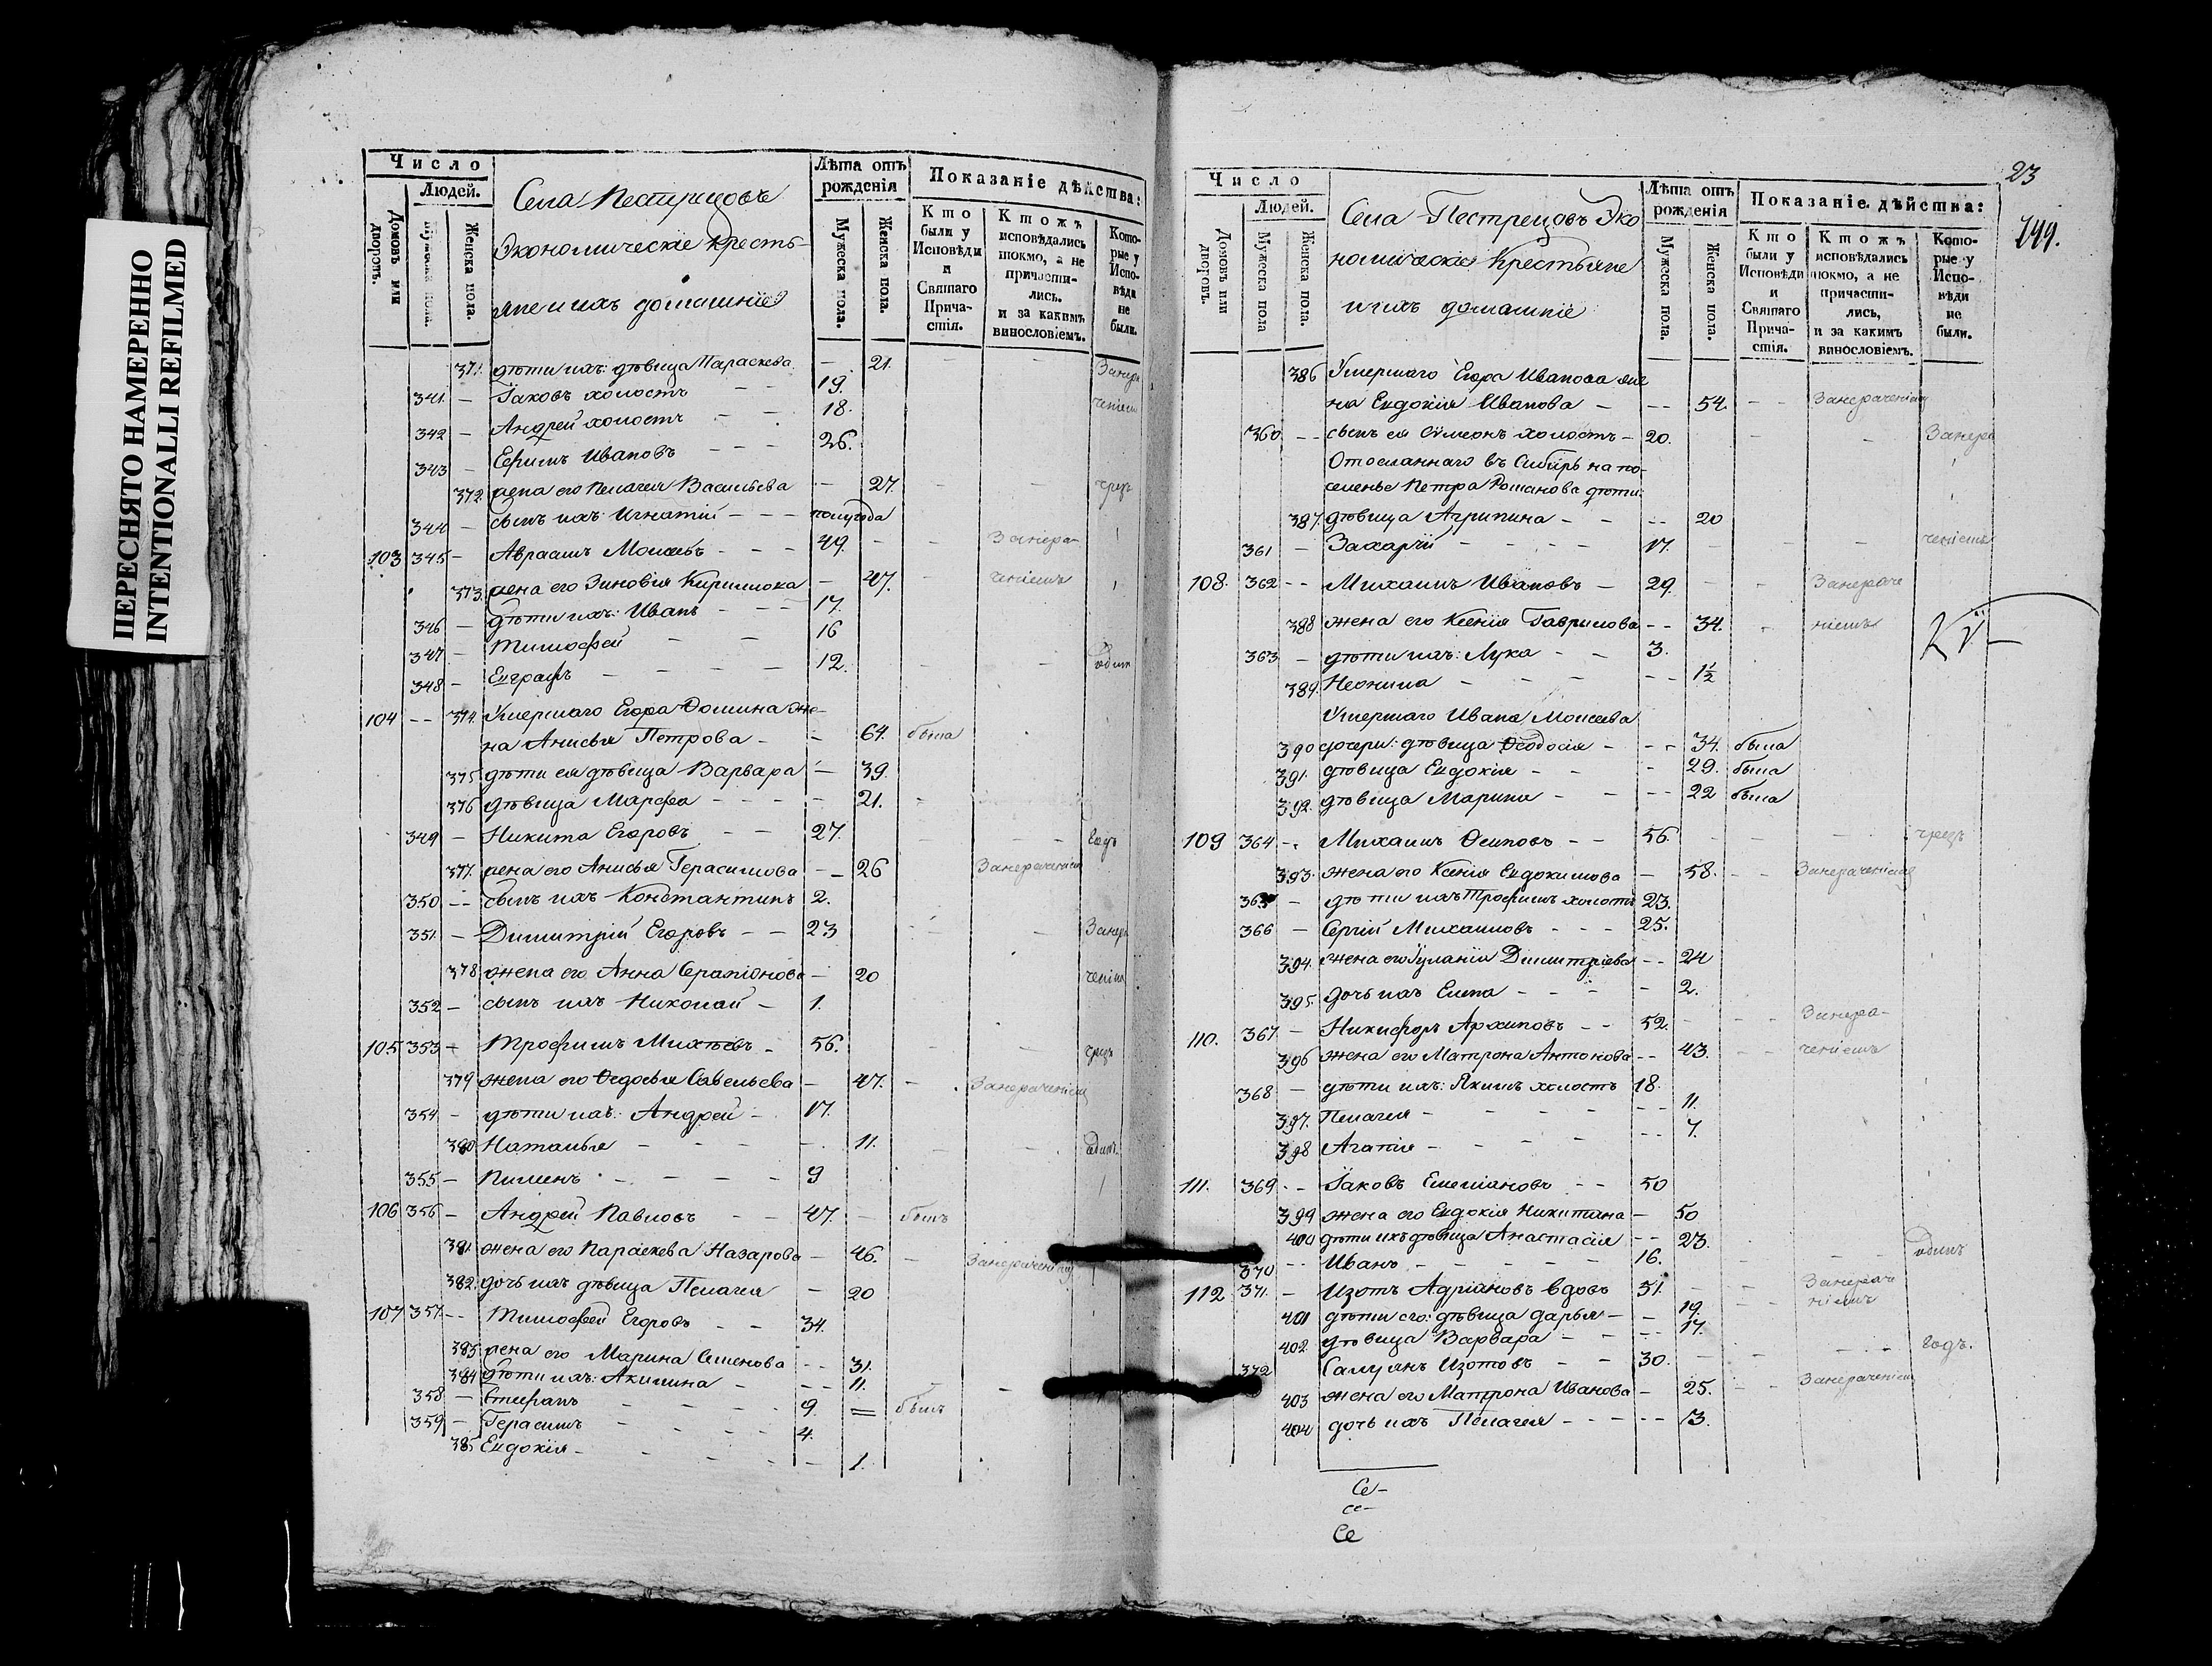 ПЕРЕСНЯТО НАМЕРЕННО
INTENTIONALLI REFILMED
Число
Людей.
Домовъ или дворовъ.
Мужеска пола.
Женска пола.
Села Пестрецовъ
Экономическіе кресть-
яне и ихъ домашніе
Лѣта отъ рожденія
Мужеска пола.
Женска пола.
Показаніе дѣйства:
Кто были у Исповѣди и Святаго Причастія.
Ктожъ исповѣдались токмо, а не причастились. и за какимъ винословіемъ.
Которые у Исповѣди не были.
371. дѣти ихъ: дѣвица Параскева — 21.
341. — Іаковъ холостъ — — 19.
342 — Андрей холостъ — — 18.
343 — Ефимъ Ивановъ — — 26.
372. жена его Пелагея Васильева — 27.
344 — сынъ ихъ Игнатій — — — полугода
103 345 — Авраамъ Моисеевъ — — — 49. Занера-
373. жена его Зиновія Кирилова — 47. ченіемъ
346 — дѣти ихъ: Иванъ — — — 17.
347 — Тимофей — — 16
348 — Евграфъ — — — 12.
104 — — 374. Умершаго Егора Фомина же-
на Анисья Петрова — — 64. была
375 дѣти ея дѣвица Варвара — 39.
376 дѣвица Марфа — — — — 21.
349 — Никита Егоровъ — — 27. Годъ
377. жена его Анисья Герасимова — — 26 Занераченіемъ
350 — — сынъ ихъ Константинъ 2.
351. — Димитрій Егоровъ — — 23
378 жена его Анна Серапіонова — 20
352 — сынъ ихъ Николай — 1.
105 353 — Трофимъ Михѣевъ — 56.
379 жена его Ѳедосья Савельева — 47. — Занераченіем
354 — дѣти ихъ: Андрей — 17.
380 Наталья — — — — — 11.
355 — Пименъ — — — — 9
106 356 — Андрей Павловъ — — 47. — былъ
381. жена его Параскева Назарова — 46. — Занераченіем
382. дочь ихъ дѣвица Пелагея — 20
107 357 — — Тимофей Егоровъ — — 34.
383 жена его Марина Семенова — — 31.
384 дѣти ихъ: Акилина — — — 11.
358 — Стефанъ — — — — 9. = былъ
359 — Герасимъ — — — — 4.
385 Евдокія — — — — — 1.
23
Число
Людей.
Домовъ или дворовъ.
Мужеска пола
Женска пола.
Села Пестрецовъ Эко
номическіе Крестьяне
и ихъ домашніе
Лѣта отъ рожденія
Мужеска пола.
Женска пола.
Показаніе дѣйства:
Кто были у Исповѣди и Святаго Причастія.
Ктожъ исповѣдались токмо, а не причастились, и за какимъ винословіемъ.
Которые у Исповѣди не были.
386 Умершаго Егора Иванова же
на Евдокія Иванова — — — 54. — — Занераченіем
360 — — сынъ ея Сѵмеонъ холостъ — 20.
Отосланнаго въ Сибирь на по-
селенье Петра Романова дѣти:
387. дѣвица Агрипина — — — — 20
361 — Захарій — — — — 17. ченіемъ
108. 362 — — Михаилъ Ивановъ — 29. Занераче
388 жена его Ксенія Гаврилова — — 34. ніемъ
363 — дѣти ихъ: Лука — — 3.
389. Неонила — — — — — 1½
Умершаго Ивана Моисеева
390 дочери: дѣвица Ѳеодосія — — — 34. была
391. дѣвица Евдокія — — — 29. была
392. дѣвица Марина — — — — 22 была
109 364 — Михаилъ Осиповъ — — 56. чрезъ
393. жена его Ксенія Евдокимова — 58. — — Занераченіемъ
365 — дѣти ихъ Трофимъ холостъ 23.
366 — Сергій Михаиловъ — — — 25.
394. жена его Іуланія Димитріева — — 24
395. дочь ихъ Елена — — — — 2.
110. 367 — Никифоръ Архиповъ — — 52. Занера-
396 жена его Матрона Антонова — — 43. — — ченіемъ
368 — дѣти ихъ: Якимъ холостъ 18.
397. Пелагея — — — — — — — 11.
398 Агапія — — — — — — 7.
111. 369 — — Іаковъ Емеліановъ — — 50
399 жена его Евдокія Никитина — 50
400 дѣти ихъ дѣвица Анастасія — — 23.
370 — — Иванъ — — — — — 16. одинъ
112 371. — Изотъ Адріановъ вдовъ 51. Занераче
401 дѣти его: дѣвица Дарья — — 19. ніемъ
402 дѣвица Варвара — — — — 17.
372 Салуянъ Изотовъ — — 30. годъ.
403 жена его Матрона Иванова — 25. — — Занераченіем
404 дочь ихъ Пелагея — — — — — 3.
Се-
се-
Се